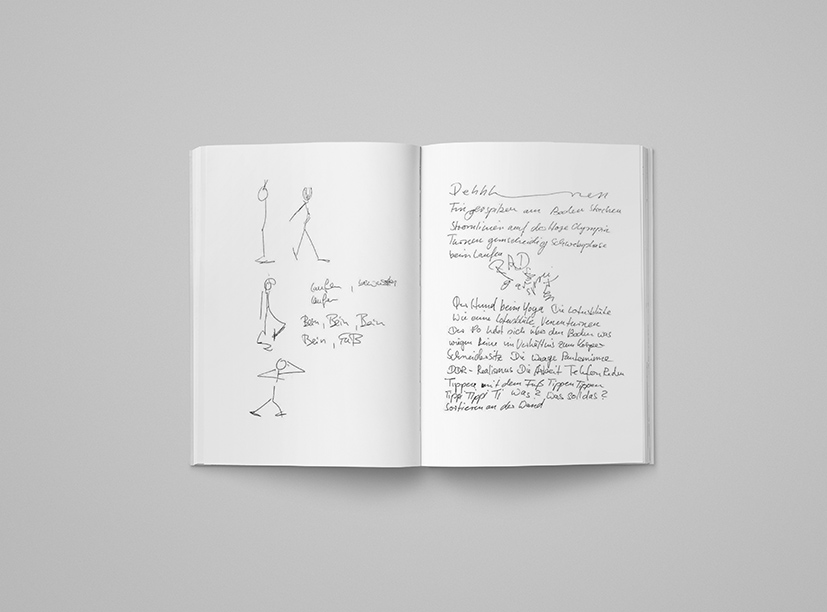 laufen
laufen
Bein, Bein, Bein
Bein, Fuß
Dehhh nen
Fingerspitzen am Boden
Stromlinien auf der Hose Olympia
Turnen Schwebephase
beim Laufen
RAD
Der Hund beim Yoga Die Lotusblüte
Wie eine Lotusblüte
Der Po hebt sich über den Boden was
wiegen Beine im Verhältnis zum Körper
Schneidersitz Die Waage Pantomime
DDR-Realismus Die Arbeit Telefon Reden
Tippen mit dem Fuß Tippen Tippen
Tippi Tippi Ti Was? Was soll das?
Sortieren an der Wand